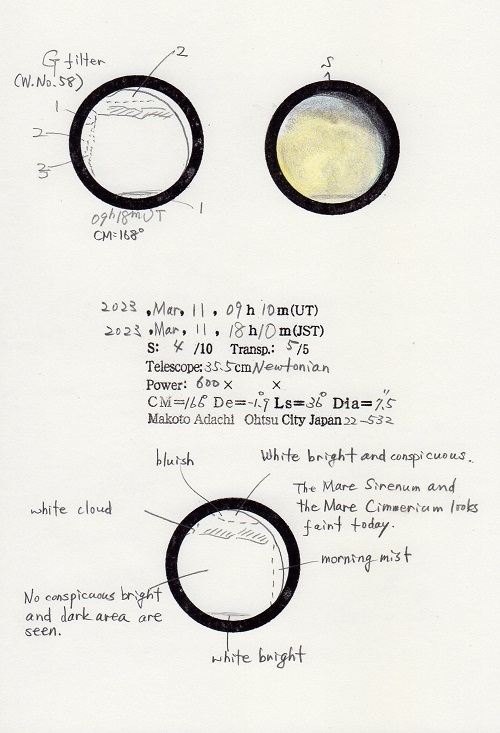 G filter
(W.No.58)
2
1
2
3
1
09h18mUT
CM=168°
S
2023, Mar, 11, 09h 10m(UT)
2023, Mar, 11, 18h 10m(JST)
S: 4 /10 Transp.: 5/5
Telescope: 35.5cm Newtonian
Power: 600× ×
CM=166° De=-1.9° Ls=36° Dia=7.5"
Makoto Adachi Ohtsu City Japan 22-532
bluish
White bright and conspicuous.
white cloud
The Mare Sirenum and
the Mare Cimmerium looks
faint today.
morning mist
No conspicuous bright
and dark area are
seen.
white bright